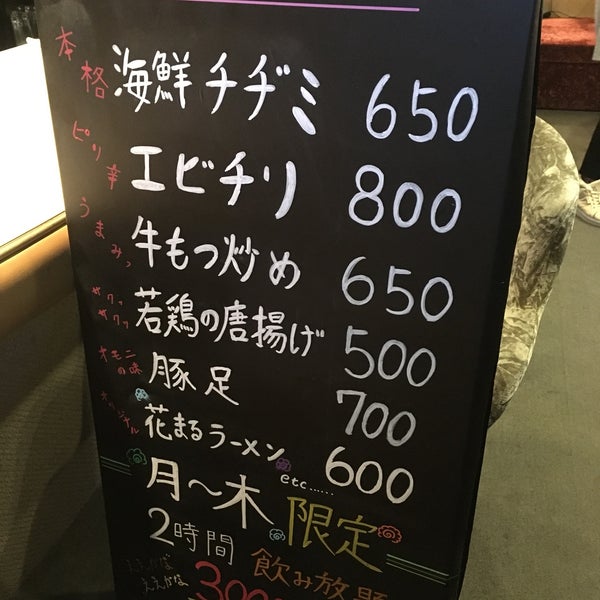 本格 海鮮チヂミ 650
ピリ辛 エビチリ 800
うまみっ 牛もつ炒め 650
ザクッザクッ 若鶏の唐揚げ 500
オモニの味 豚足 700
オリジナル 花まるラーメン 600
etc......
月〜木 限定
2時間 飲み放題